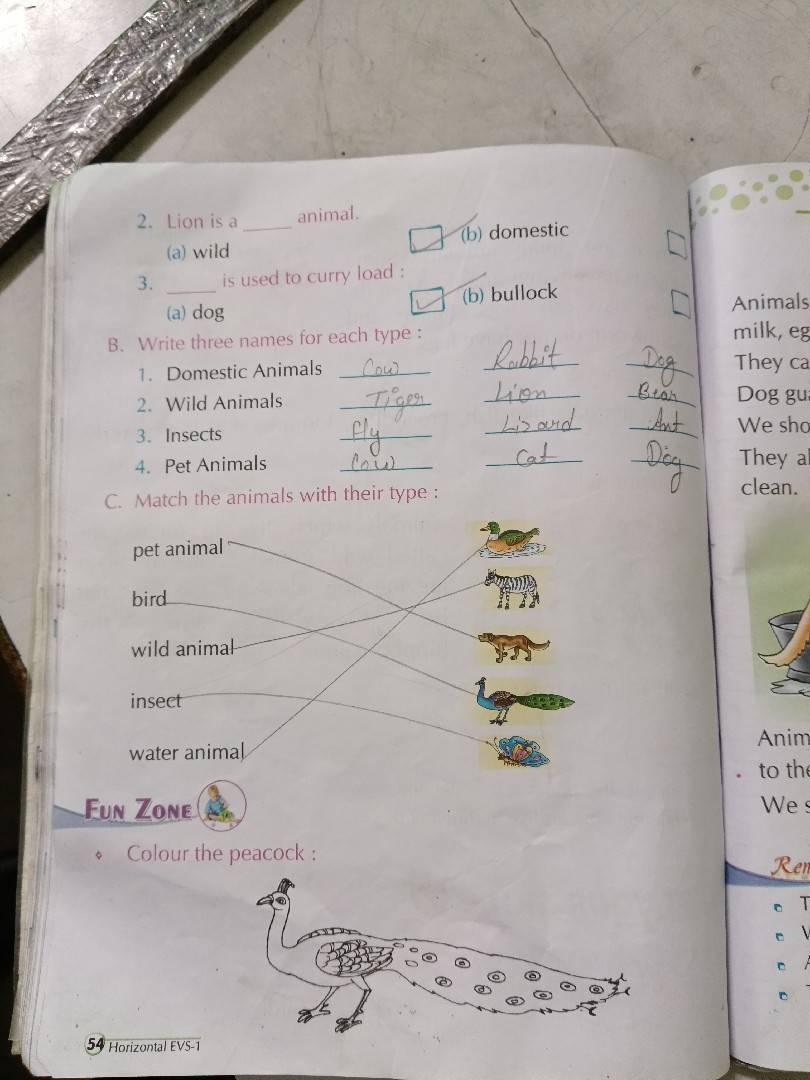 2. Lion is a _____ animal.
(a) wild (b) domestic
3. _____ is used to curry load :
(a) dog (b) bullock
B. Write three names for each type :
1. Domestic Animals Cow Rabbit Dog
2. Wild Animals Tiger Lion Bear
3. Insects fly Lizard Ant
4. Pet Animals Cow Cat Dog
C. Match the animals with their type :
pet animal
bird
wild animal
insect
water animal
FUN ZONE
Colour the peacock :
54 Horizontal EVS-1
Animals
milk, eg
They ca
Dog gua
We sho
They al
clean.
Anim
to the
We s
Rem